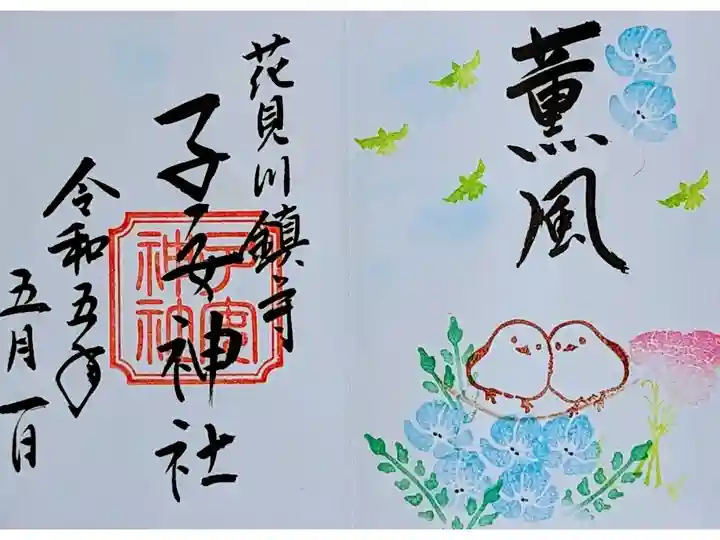 薫風
花見川鎮守
子安神社
子安
神社
令和五年
五月一日